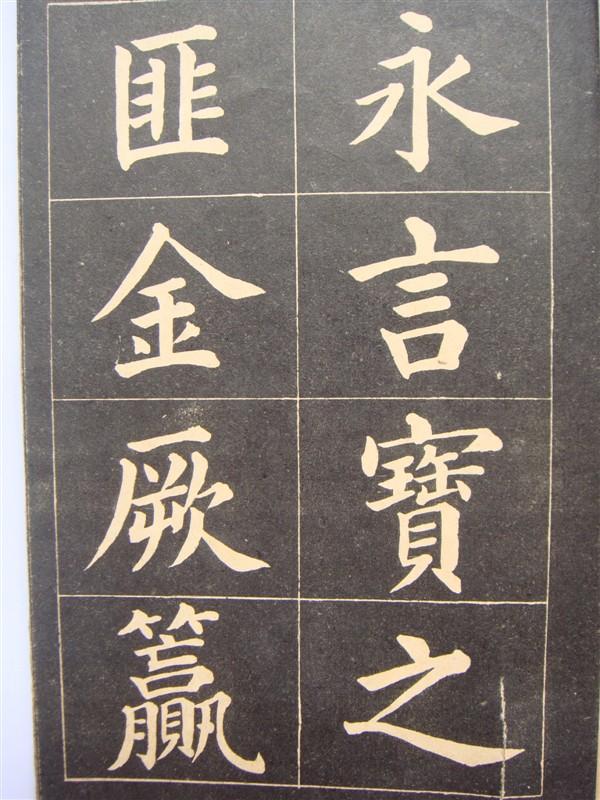 永言寶之
匪金厥籯